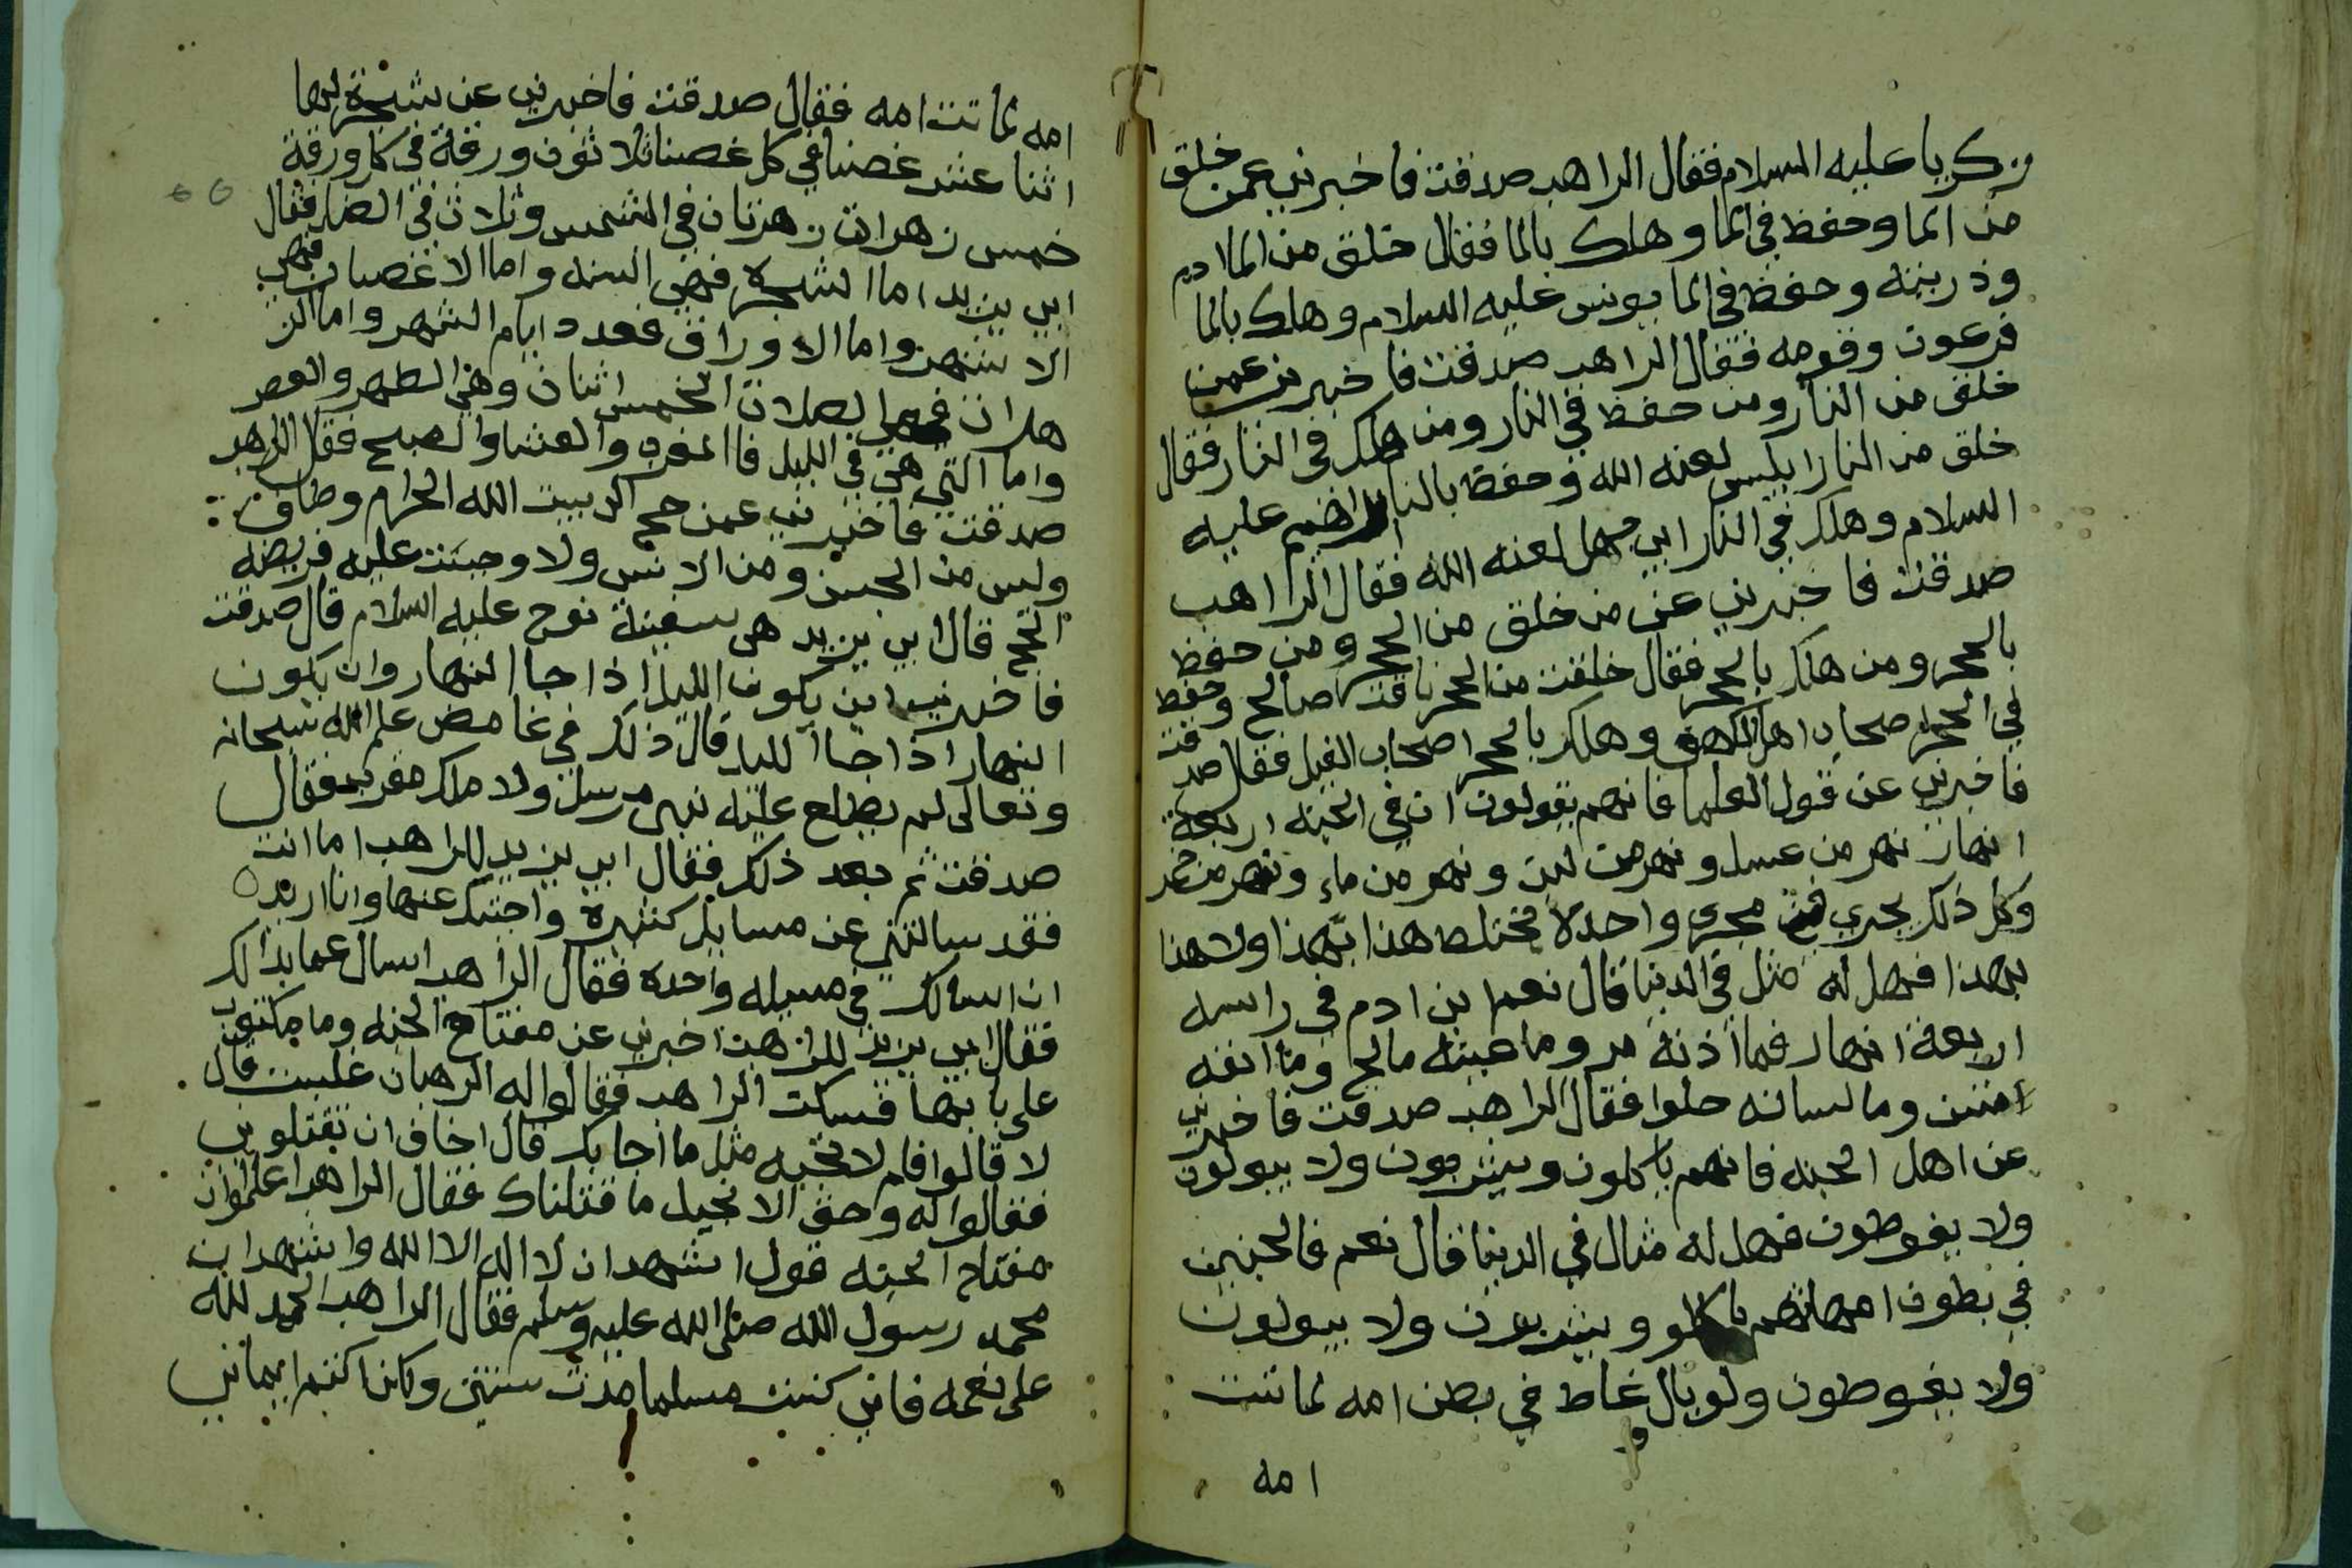 زكريا عليه السلام فقال الراهب صدقت فاخبرني عمن خلق
من الما وحفظ في الما وهلك بالما فقال خلق من الما ادم
وذريته وحفظ في الما يونس عليه السلام وهلك بالما
فرعون وقومه فقال الراهب صدقت فاخبرني عمن
خلق من النار ومن حفظ في النار ومن هلك في النار فقال
خلق من النار ابليس لعنه الله وحفظ بالنار ابراهيم عليه
السلام وهلك في النار ابي جهل لعنه الله فقال الراهب
صدقت فاخبرني عن من خلق من الحجر ومن حفظ
بالحجر ومن هلك بالحجر فقال خلقت من الحجر ناقت صالح وحفظ
في الحجر اصحاب اهل الكهف وهلك بالحجر اصحاب الفيل فقال صدقت
فاخبرني عن قول العلما فانهم يقولون ان في الجنه اربعة
انهار نهر من عسل ونهر من لبن ونهر من ماء ونهر من خمر
وكل ذلك يجري من مجرى واحد لا مختلط هذا بهذا ولا هذا
بهذا فهل له مثل في الدنيا قال نعم ابن ادم في راسه
اربعة انهار فما اذنه مر وما عينه مالح وما انفه
منتن وما لسانه حلوا فقال الراهب صدقت فاخبرني
عن اهل الجنه فانهم ياكلون ويشربون ولا يبولون
ولا يغوطون فهل له مثال في الدنيا قال نعم فالجنين
في بطون امهاتهم ياكلو ويشربون ولا يبولون
ولا يغوطون ولو بال وغاط في بطن امه لماتت
امه
امه لماتت امه فقال صدقت فاخبرني عن شجرة لها
اثنا عشر غصنا في كل غصنا ثلاثون ورقة في كل ورقة
خمس زهرات زهرتان في الشمس وثلاث في الضل فقال
ابي يزيد اما الشجره فهي السنه واما الاغصان فهي
الاشهر واما الاوراق فعدد ايام الشهر واما الز
هرات فهي الصلات الخمس اثنان وهي الظهر والعصر
واما التي هي في الليل فالمغرب والعشا والصبح فقال الراهب
صدقت فاخبرني عمن حج الي بيت الله الحرام وطاف
وليس من الجن ومن الانس ولا وجبت عليه فريضه
الحج قال ابي يزيد هي سفينة نوح عليه السلام قال صدقت
فاخبرني اين يكون الليل اذا جا النهار وان يكون
النهار اذا جا الليل قال ذلك في غامض علم الله سبحانه
وتعالى لم يطلع عليه نبي مرسل ولا ملك مقرب فقال
صدقت ثم بعد ذلك فقال ابي يزيد للراهب اما انت
فقد سالتني عن مسايل كثيرة واجبتك عنها وانا اريد
ان اسالك في مسيله واحده فقال الراهب اسال عما بدا لك
فقال ابي يزيد للراهب اخبرني عن مفتاح الجنه وما مكتوب
على بابها فسكت الراهب فقالوا له الرهبان غلبت قال
لا قالوا فلم لا تجبه مثل ما اجابك قال اخاف ان تقتلوني
فقالوا له وحق الانجيل ما قتلناك فقال الراهب اعلموا ان
مفتاح الجنه قول اشهد ان لا اله الا الله واشهد ان
محمد رسول الله صلى الله عليه وسلم فقال الراهب الحمد لله
على نعمه فاني كنت مسلما مدت سنتين وكاتما اكتم ايماني